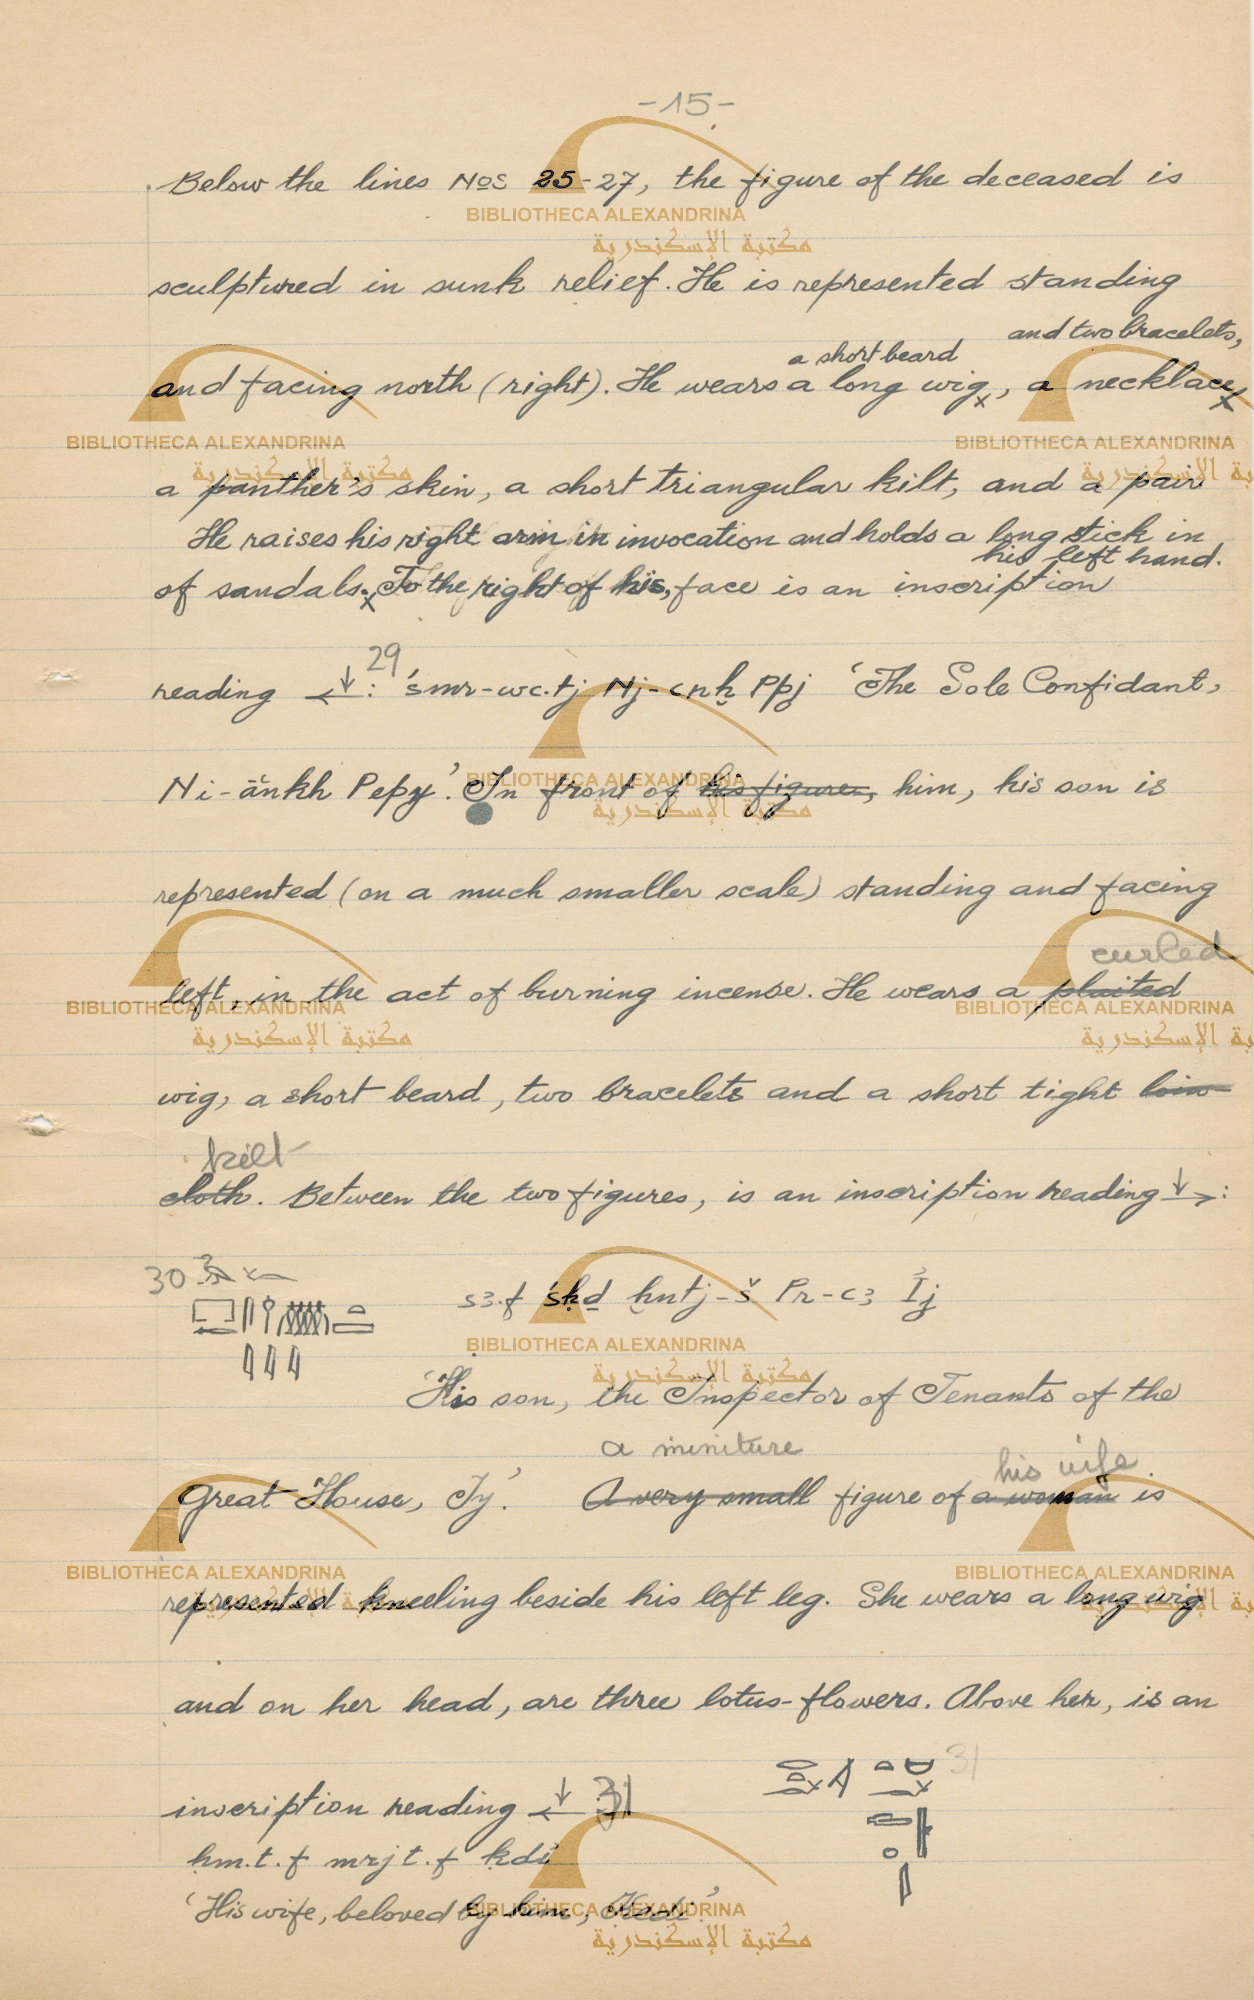 -15-
Below the lines Nos 25-27, the figure of the deceased is
sculptured in sunk relief. He is represented standing
and two bracelets,
a short beard
and facing north (right). He wears a long wig x, a necklace x
a panther's skin, a short triangular kilt, and a pair
He raises his right arm in invocation and holds a long stick in
his left hand.
of sandals. x To the right of his, face is an inscription
29
reading ←↓: 'śmr-wc.tj Nj-cnḫ Ppj 'The Sole Confidant,
Ni-ānkh Pepy'. In front of his figure, him, his son is
represented (on a much smaller scale) standing and facing
curled
left, in the act of burning incense. He wears a plaited
wig, a short beard, two bracelets and a short tight loin-
kilt
cloth. Between the two figures, is an inscription reading ↓→:
30
s3.f śḥḏ ḫntj-š Pr-c3 Íj
'His son, the Inspector of Tenants of the
a miniture
his wife
Great House, Iy'. A very small figure of a woman is
represented kneeling beside his left leg. She wears a long wig
and on her head, are three lotus-flowers. Above her, is an
31
inscription reading ←↓: 31
ḥm.t.f mrjt.f ḳdí
'His wife, beloved by him, Kedi.'
BIBLIOTHECA ALEXANDRINA
مكتبة الإسكندرية
BIBLIOTHECA ALEXANDRINA
مكتبة الإسكندرية
BIBLIOTHECA ALEXANDRINA
BIBLIOTHECA ALEXANDRINA
مكتبة الإسكندرية
BIBLIOTHECA ALEXANDRINA
مكتبة الإسكندرية
BIBLIOTHECA ALEXANDRINA
BIBLIOTHECA ALEXANDRINA
مكتبة الإسكندرية
BIBLIOTHECA ALEXANDRINA
مكتبة الإسكندرية
BIBLIOTHECA ALEXANDRINA
BIBLIOTHECA ALEXANDRINA
مكتبة الإسكندرية